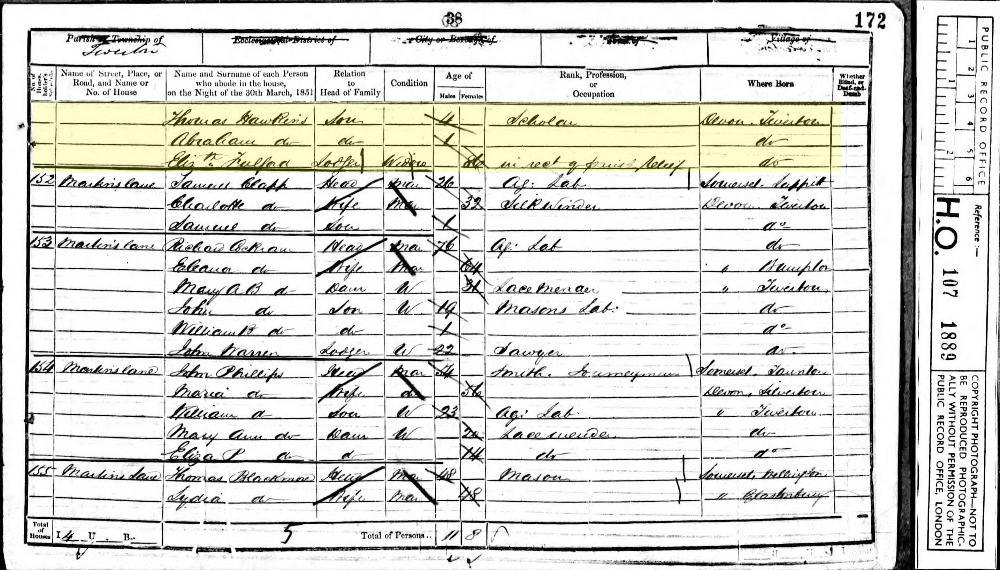 38
172
Parish or Township of Ecclesiastical District of City or Borough of Town of Village of
Tiverton
No. of House-holder's Schedule Name of Street, Place, or Road, and Name or No. of House Name and Surname of each Person who abode in the house, on the Night of the 30th March, 1851 Relation to Head of Family Condition Age of Males Females Rank, Profession, or Occupation Where Born Whether Blind, or Deaf-and-Dumb
Thomas Hawkins Son 4 Scholar Devon Tiverton
Abraham do do 1 do
Elizth Fulford Lodger Widow in rect of parish relief do
152 Martins lane Samuel Clapp Head Mar 26 Ag: Lab Somerset
Charlotte do Wife Mar 32 Silk Winder Devon Tiverton
Samuel do Son 1 do
153 Martins lane Richard Head Mar 76 Ag: Lab do
Eleanor do Wife Mar 64 " Bampton
Mary A B do Daur U 31 Lace Mender " Tiverton
John do Son U 19 Masons Lab: do
William B do do 1 do
John Warren Lodger U 22 Sawyer do
154 Martins lane John Phillips Head Mar 54 Smith Journeyman Somerset Taunton
Maria do Wife do 56 Devon Silverton
William do Son U 23 Ag: Lab " Tiverton
Mary Ann do Daur U 20 Lace mender do
Eliza P do do 14 do do
155 Martins lane Thomas Blackmore Head Mar 48 Mason Somerset Wellington
Lydia do Wife Mar 48 " Glastonbury
Total of Houses I 4 U B 5 Total of Persons 11 8
PUBLIC RECORD OFFICE
1 2 3 4 5 6
Reference:-
H.O. 107 1889
COPYRIGHT PHOTOGRAPH—NOT TO BE REPRODUCED PHOTOGRAPHICALLY WITHOUT PERMISSION OF THE PUBLIC RECORD OFFICE, LONDON